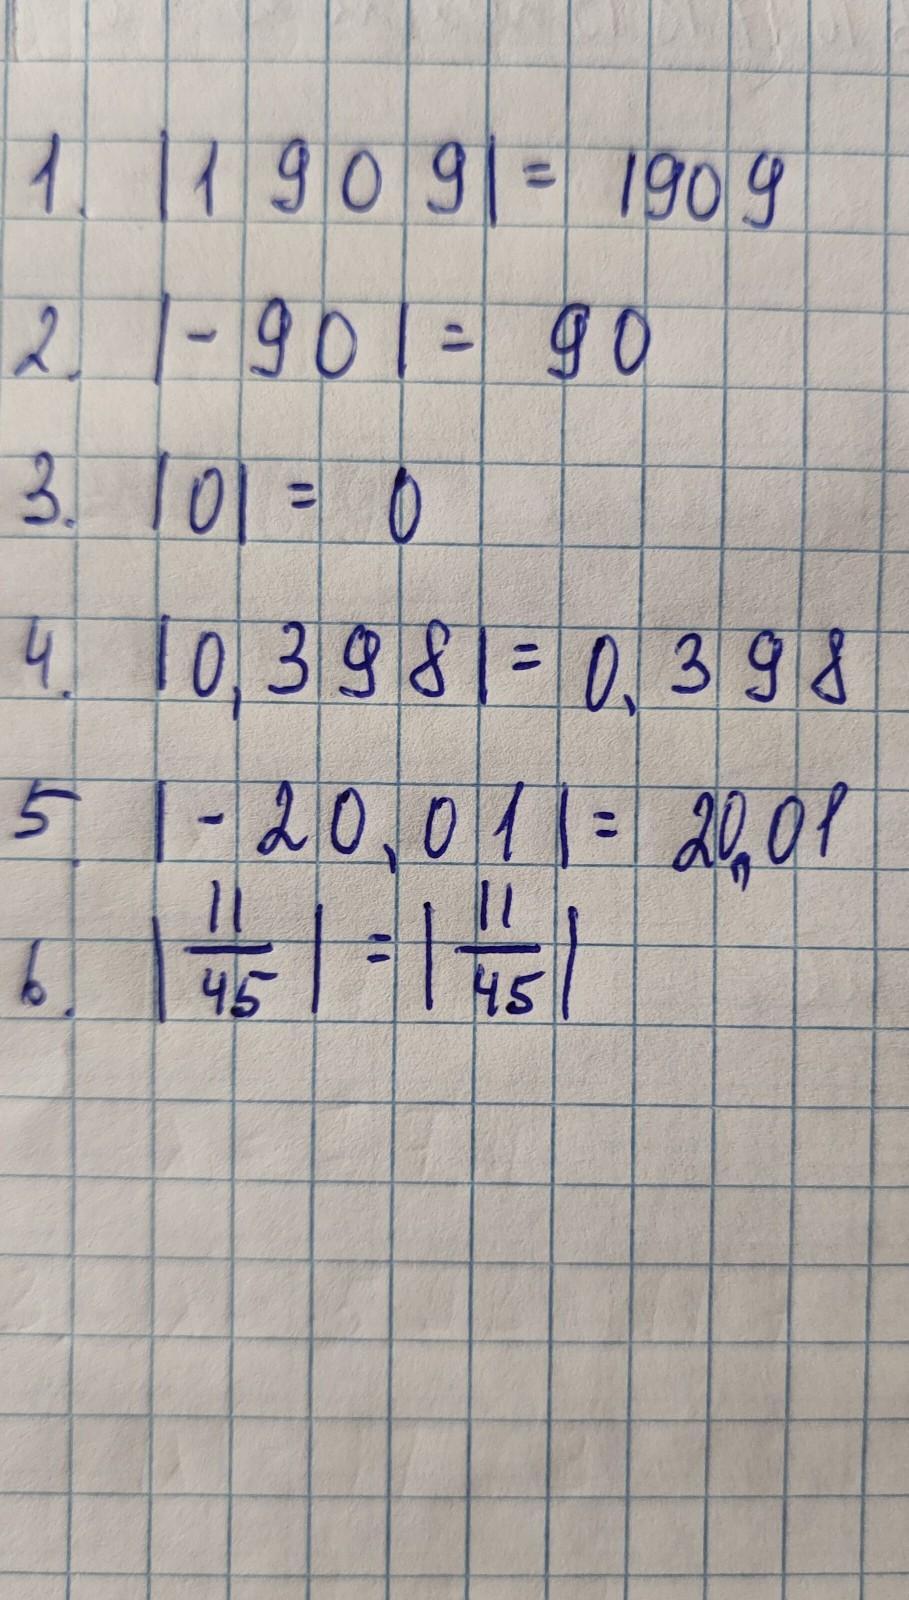 1. |1909| = 1909
2. |-90| = 90
3. |0| = 0
4. |0,398| = 0,398
5. |-20,01| = 20,01
6. |11/45| = |11/45|